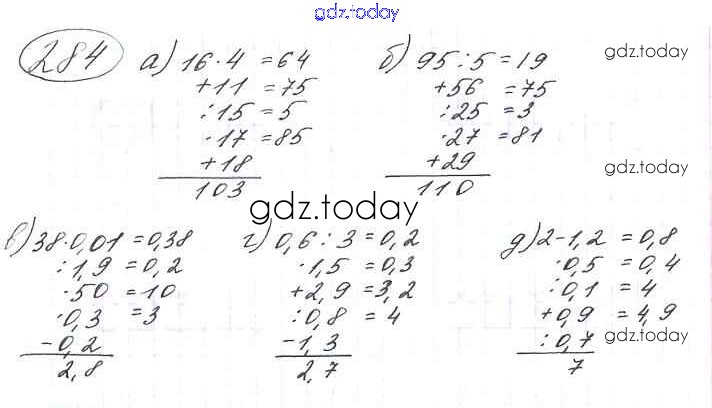 gdz.today
284
а) 16·4 = 64
+11 = 75
:15 = 5
·17 = 85
+18
103
б) 95:5 = 19
+56 = 75
:25 = 3
·27 = 81
+29
110
gdz.today
gdz.today
gdz.today
в) 38·0,01 = 0,38
:1,9 = 0,2
·50 = 10
·0,3 = 3
-0,2
2,8
г) 0,6:3 = 0,2
·1,5 = 0,3
+2,9 = 3,2
:0,8 = 4
-1,3
2,7
д) 2-1,2 = 0,8
·0,5 = 0,4
:0,1 = 4
+0,9 = 4,9
:0,7
7
gdz.today
gdz.today